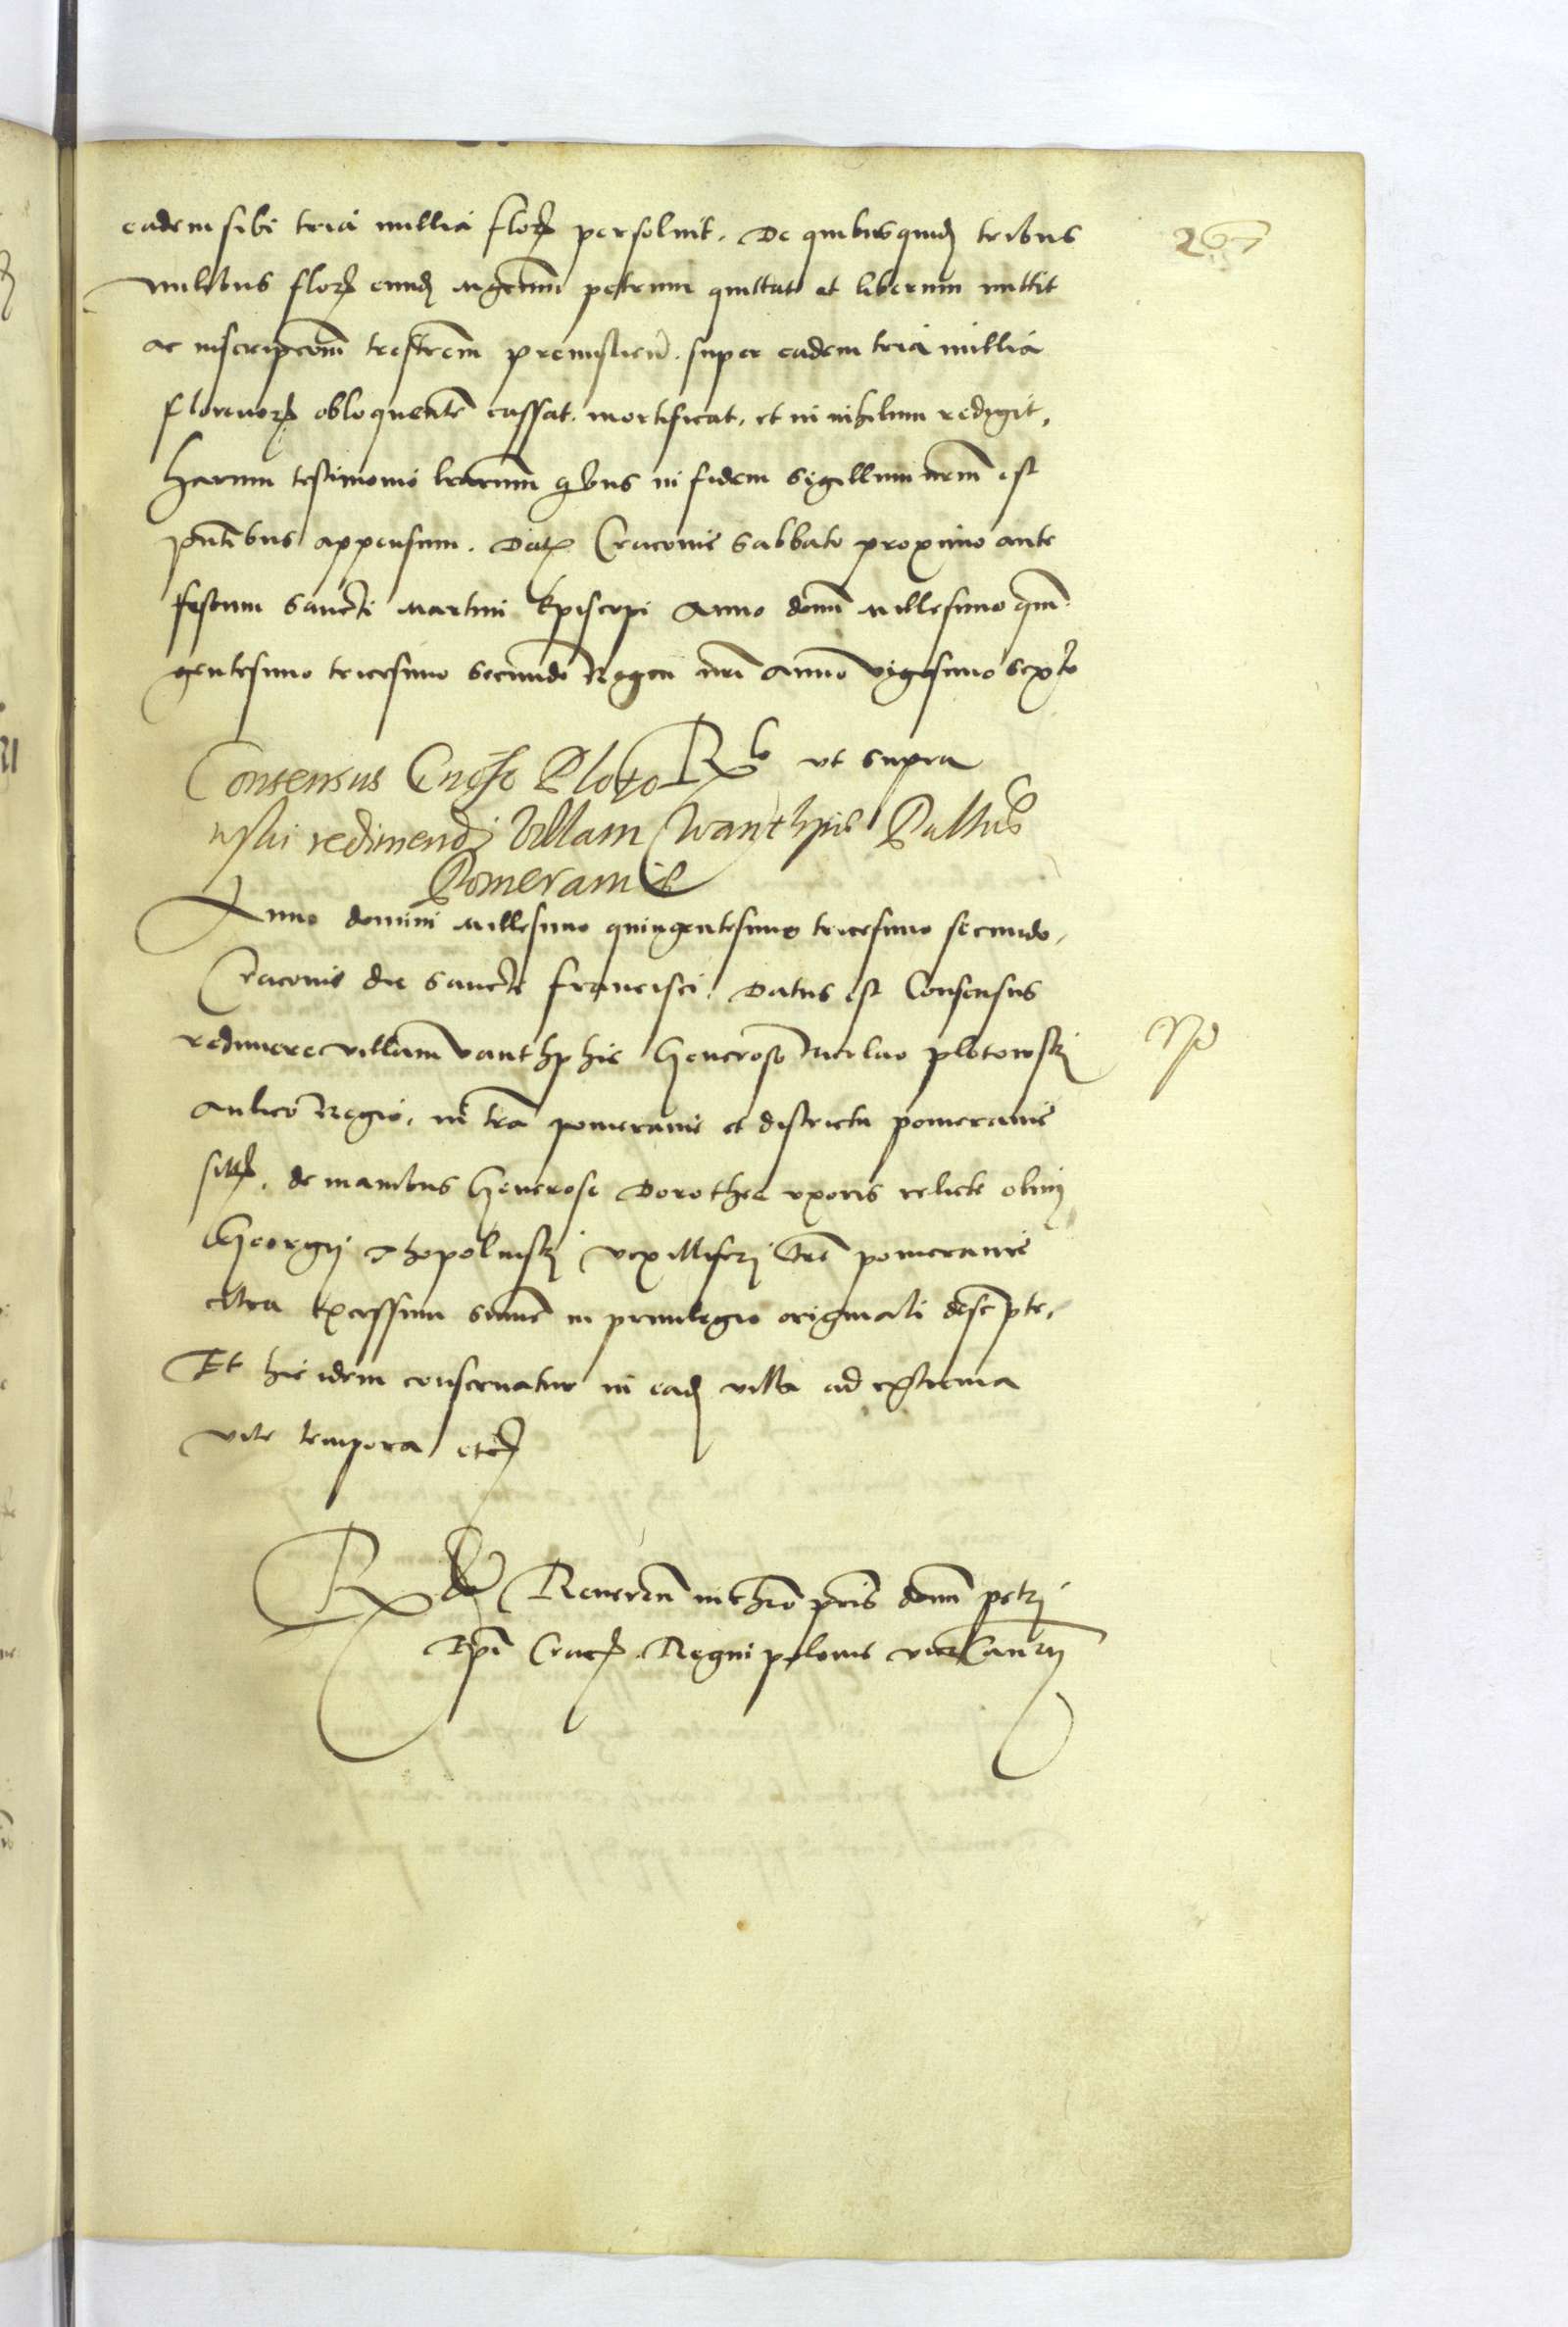 267
eadem sibi tria millia flor persoluit. De quibusquid tribus
milibus flor eund Mgcum petrum quittat et liberum mittit
ac inscripcom trestrem premislien. super eadem tria millia
florenor obloquente cassat. mortificat, et in nihilum redigit,
harum testimonio lrarum qbus in fidem sigillum nrm est
pntibus appensum. Dat Cracovie Sabbato proximo ante
festum Sancti Martini Episcopi Anno domi Millesimo quin
gentesimo tricesimo secundo Regni nri Anno vigesimo sexto
Rlo ut supra
Consensus Ploto
wski redimendi Villam Wanthpie Pallus
Pomeraniæ
Anno domini Millesimo quingentesimo tricesimo secundo,
Cracovie die Sancti francisci. Datus est Consensus
redimere villam vanthphie Generoso Nicolao plotowskj
Nd
Aulico Regio, in tra pomeranie et districtu pomeranie
sitt. de manibus Generose Dorothee vxoris relicte olim
Georgij Thopolinskj vexilliferj tre pomeranie
citra excessum summe in priuilegio originali descpte,
Et hic idem conseruatur in ead villa ad extrema
vite tempora etc
Rlo Reueren in chro pris domi petrj
Epi Crac. Regni polonie vicecanrij